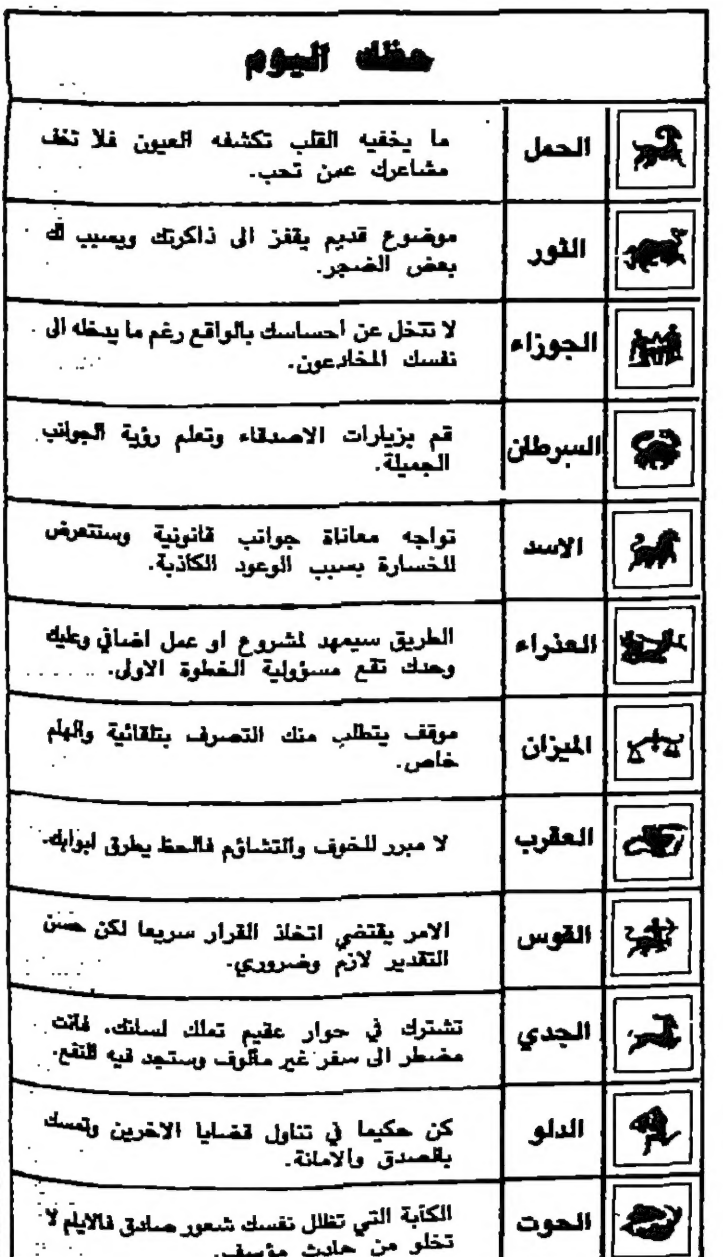 حظك اليوم
الحمل
ما يخفيه القلب تكشفه العيون فلا تخف
مشاعرك عمن تحب.
الثور
موضوع قديم يقفز الى ذاكرتك ويسبب لك
بعض الضجر.
الجوزاء
لا تتخل عن احساسك بالواقع رغم ما يدخله الى
نفسك المخادعون.
السرطان
قم بزيارات الاصدقاء وتعلم رؤية الجوانب
الجميلة.
الاسد
تواجه معاناة جوانب قانونية وستتعرض
للخسارة بسبب الوعود الكاذبة.
العذراء
الطريق سيمهد لمشروع او عمل اضافي وعليك
وحدك تقع مسؤولية الخطوة الاولى.
الميزان
موقف يتطلب منك التصرف بتلقائية والهام
خاص.
العقرب
لا مبرر للخوف والتشاؤم فالحظ يطرق ابوابك.
القوس
الامر يقتضي اتخاذ القرار سريعا لكن حسن
التقدير لازم وضروري.
الجدي
تشترك في حوار عقيم تملك لسانك. فانت
مضطر الى سفر غير مألوف وستجد فيه النفع.
الدلو
كن حكيما في تناول قضايا الاخرين وتمسك
بالصدق والامانة.
الحوت
الكآبة التي تظلل نفسك شعور صادق فالايام لا
تخلو من حادث مؤسف.